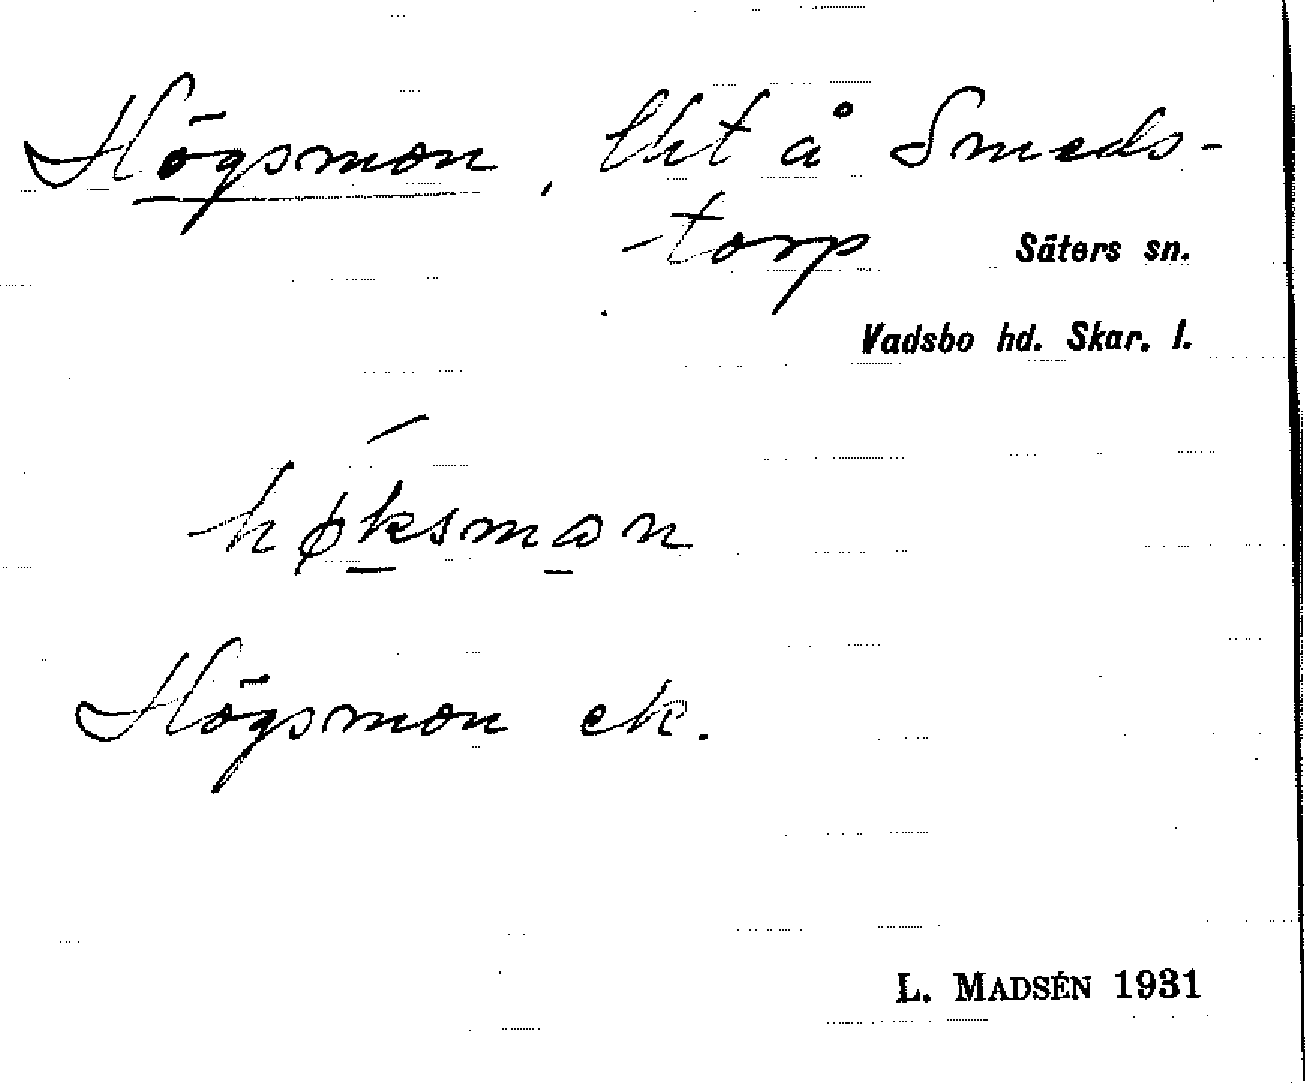 Högsmon, lht å Smeds-
torp Säters sn.
Vadsbo hd. Skar. l.
hø̱ksmo̱n
Högsmon ek.
L. MADSÉN 1931